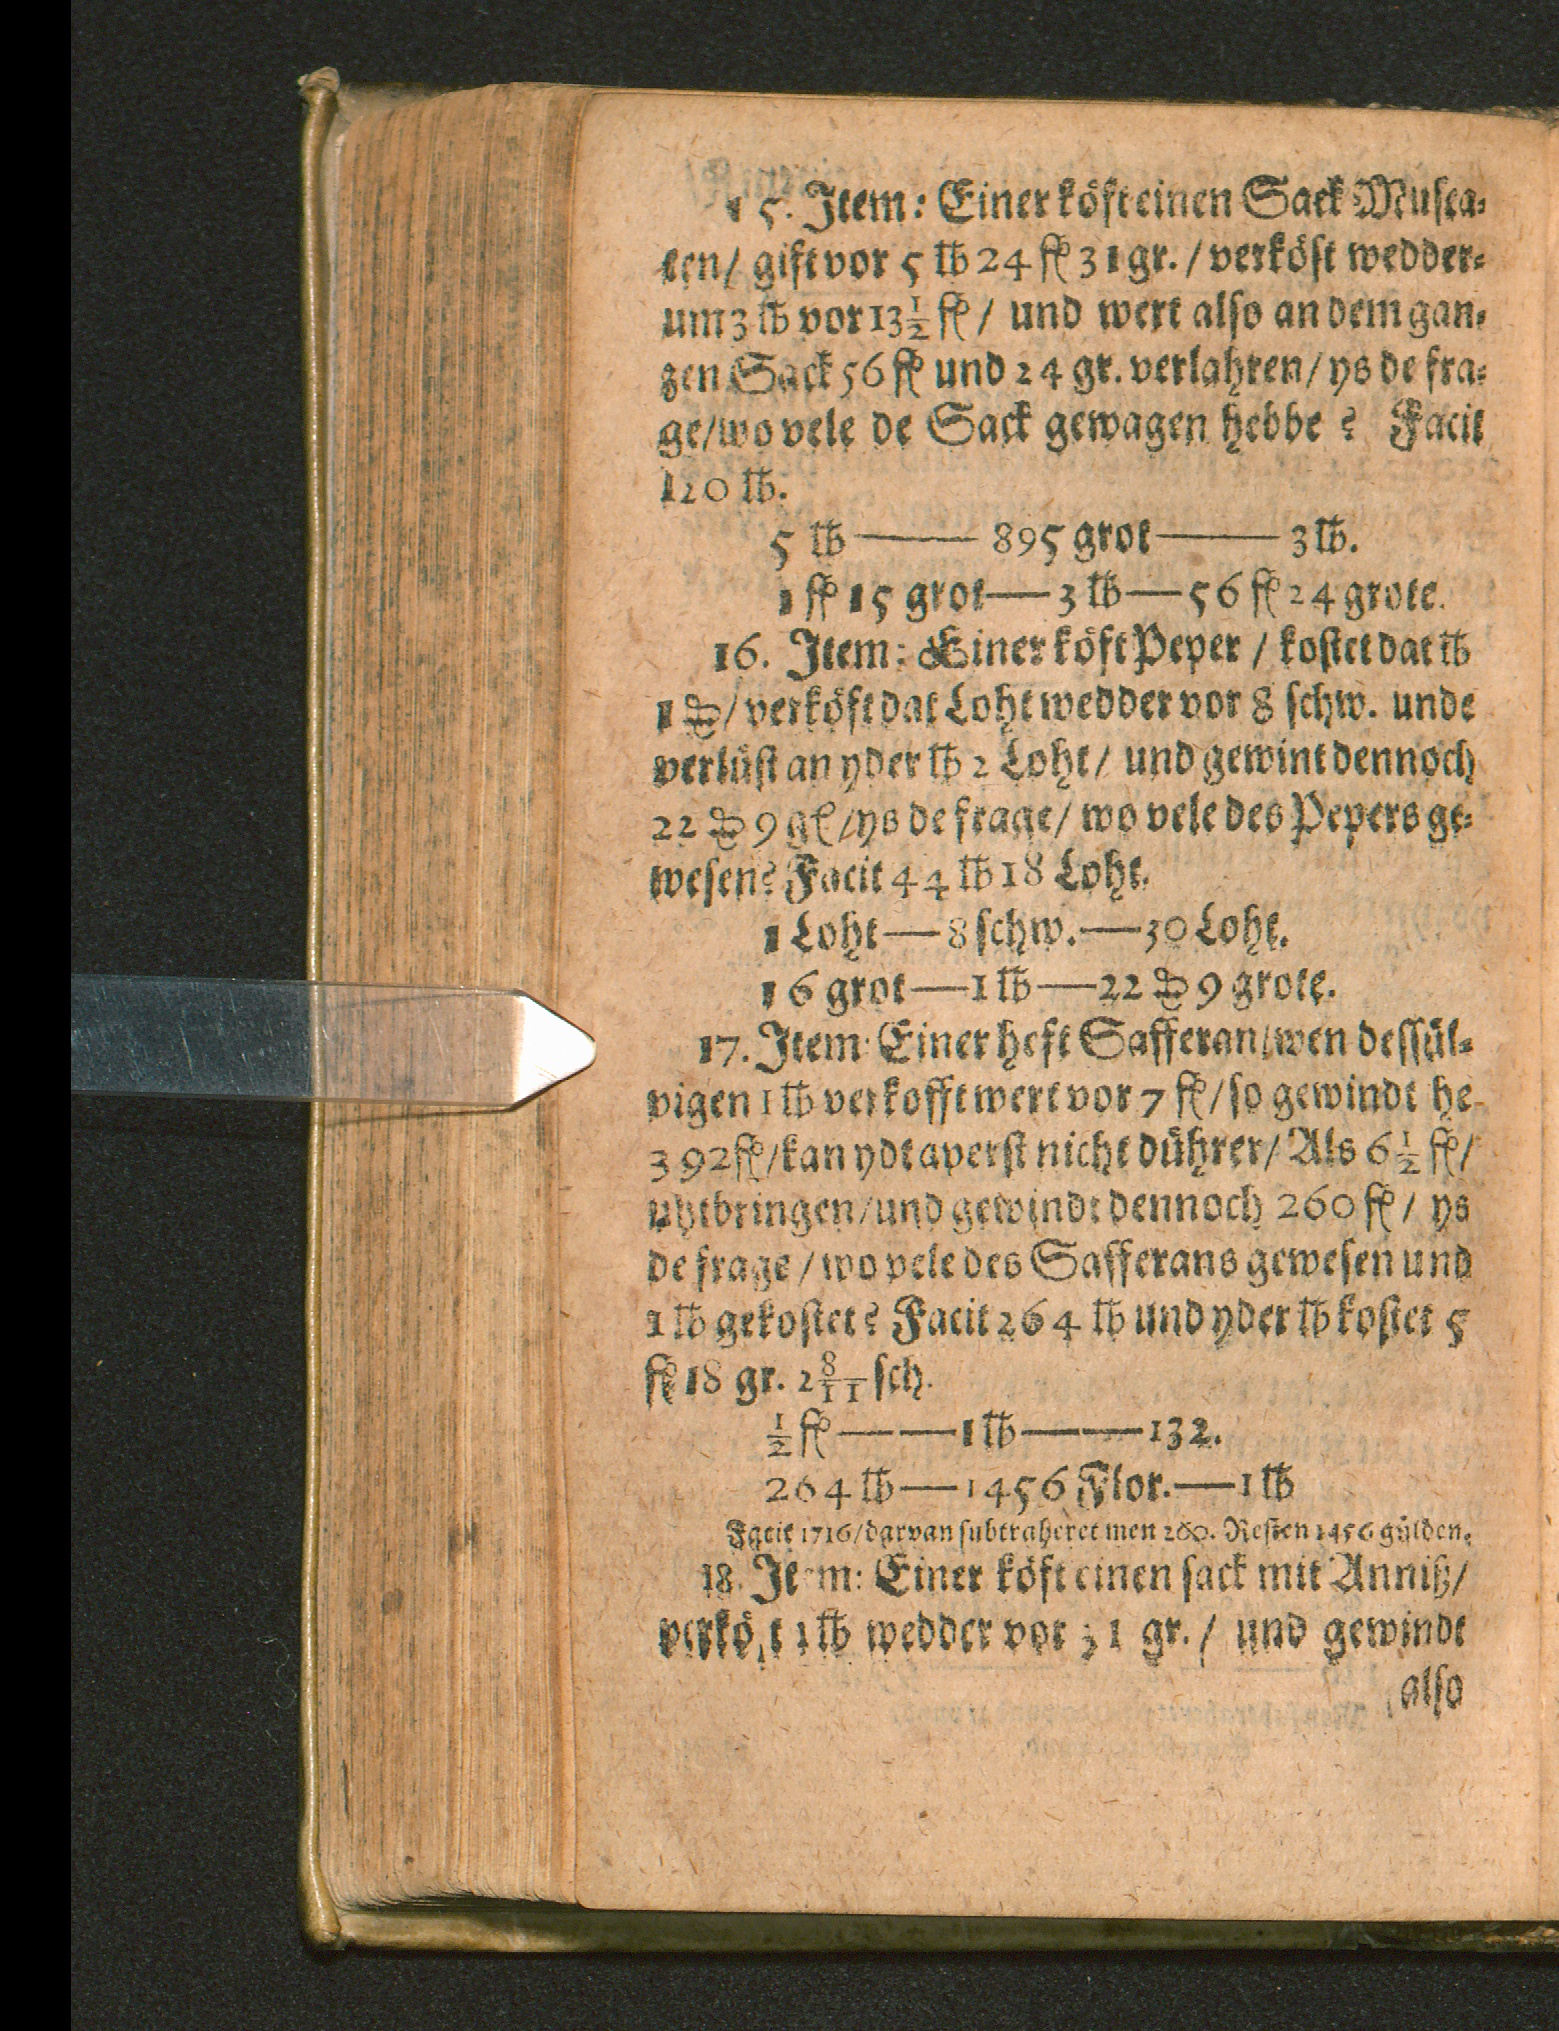 15. Item: Einer köft einen Sack Musca-
ten/ gift vor 5 ℔ 24 fl 31 gr. / verköft wedder-
um 3 ℔ vor 13 1/2 fl / und wert also an dem gan-
zen Sack 56 fl und 24 gr. verlahren/ ys de fra-
ge/ wo vele de Sack gewagen hebbe? Facit
120 ℔.
5 ℔ —— 895 grot —— 3 ℔.
1 fl 15 grot — 3 ℔ — 56 fl 24 grote.
16. Item: Einer köft Peper / kostet dat ℔
1 ♃/ verköft dat Loht wedder vor 8 schw. unde
verlüst an yder ℔ 2 Loht/ und gewint dennoch
22 ♃ 9 gl /ys de frage/ wo vele des Pepers ge-
wesen? Facit 44 ℔ 18 Loht.
1 Loht — 8 schw. — 30 Loht.
16 grot — 1 ℔ — 22 ♃ 9 grote.
17. Item: Einer heft Safferan/ wen dessül-
vigen 1 ℔ verkofft wert vor 7 fl/ so gewindt he
392 fl/ kan ydt averst nicht dührer/ Als 6 1/2 fl/
uhtbringen/ und gewindt dennoch 260 fl / ys
de frage / wo vele des Safferans gewesen und
1 ℔ gekostet? Facit 264 ℔ und yder ℔ kostet 5
fl 18 gr. 2 8/11 sch.
1/2 fl — — 1 ℔ — — 132.
264 ℔ — 1456 Flor. — 1 ℔
Facit 1716/ darvan subtraheret men 260. Resten 1456 gülden.
18. Item: Einer köft einen sack mit Anniß/
verköft 1 ℔ wedder vor 31 gr. / und gewindt
also